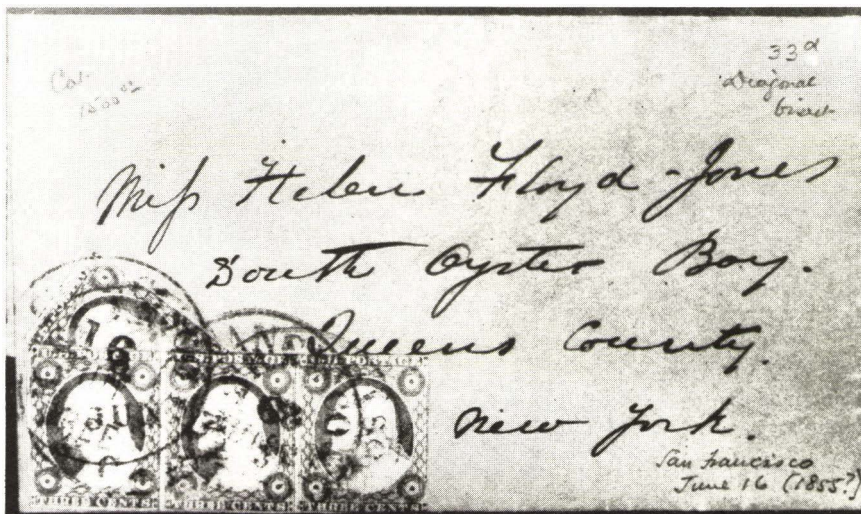 Cat
33a
Diagonal
bisect
Miss Helen Floyd-Jones
South Oyster Bay.
Queens County.
New York.
San Francisco
June 16 (1855?)
16
THREE CENTS THREE CENTS THREE CENTS